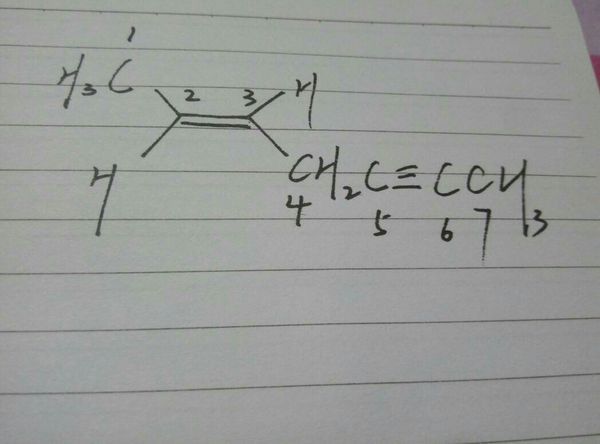 1
H₃C 2 3 H
H CH₂C≡CCH₃
4 5 6 7